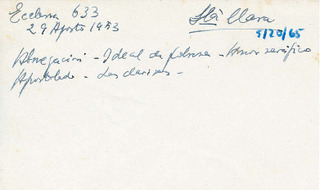 Ecclesia 633
29 Agosto 1953
Sta Clara
5/20/65
Abnegación - Ideal de pobreza - Amor seráfico
Apostolado - Las clarisas -